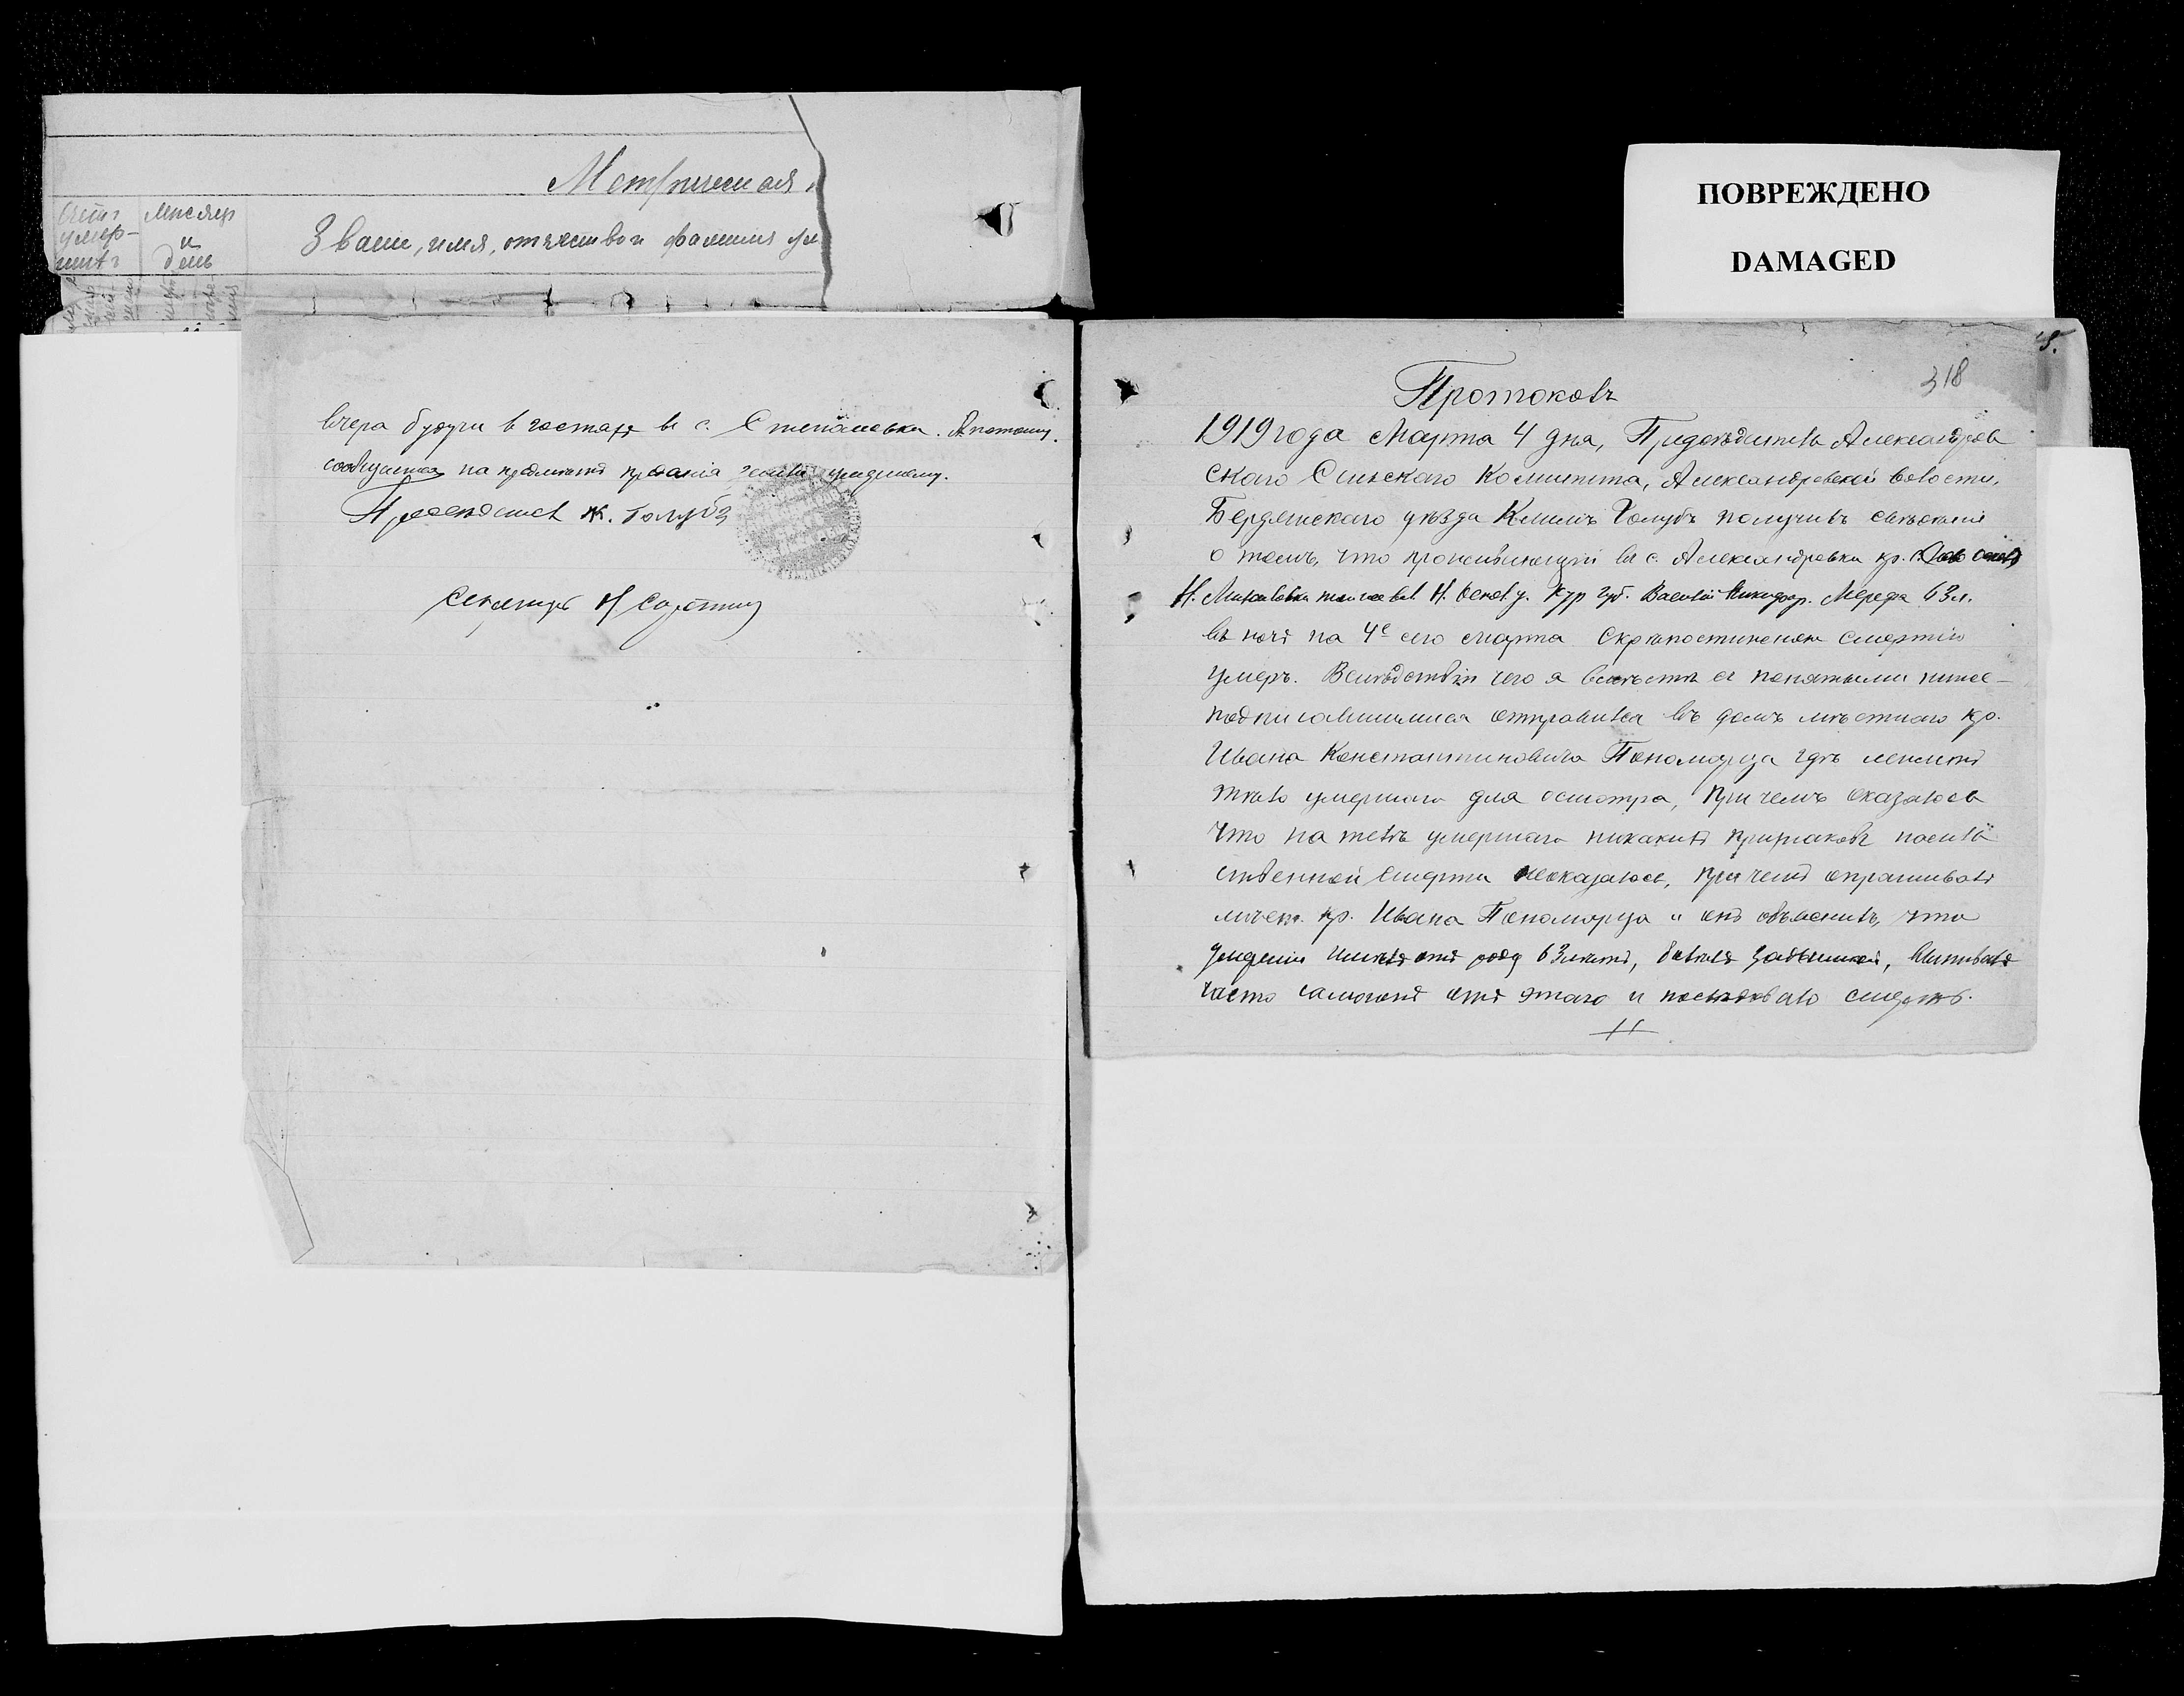 Метрическая
Счетъ умер-шихъ
Месяцъ и день
Званіе, имя, отчество и фамилия ум
ПОВРЕЖДЕНО
DAMAGED
вчера будучи в гостяхъ въ с. Степановки. А потому
сообщается на предметъ преданія земли умершаго.
Председатель К. Голубъ
Секретарь
318
Протоколъ
1919 года Марта 4 дня, Председатель Александров
скаго Сельскаго Комитета, Александровской волости,
Бердянскаго уезда Климъ Голубъ получивъ сведения
о томъ, что проживающій въ с. Александровки кр.
Н. Михайловки той же вол. Н. Оскол. у. Кур губ. Василій Никифор. Мереда 63 л.
въ ночь на 4е сего Марта Скоропостижною смертію
умеръ. Вследствіи чего я вместе съ понятыми ниже-
подписавшимися отправился въ домъ местнаго кр.
Ивана Константиновича Пономарца где лежитъ
тело умершаго для осмотра, при чемъ оказалось
что на теле умершаго никакихъ признаковъ насиль
ственной смерти неоказалось, при чемъ опрашивалъ
кр. Ивана Пономарца и онъ объяснилъ, что
умершій имелъ отъ роду 63 летъ, болелъ, выпивалъ
часто самогонъ отъ этаго и последовала смерть.